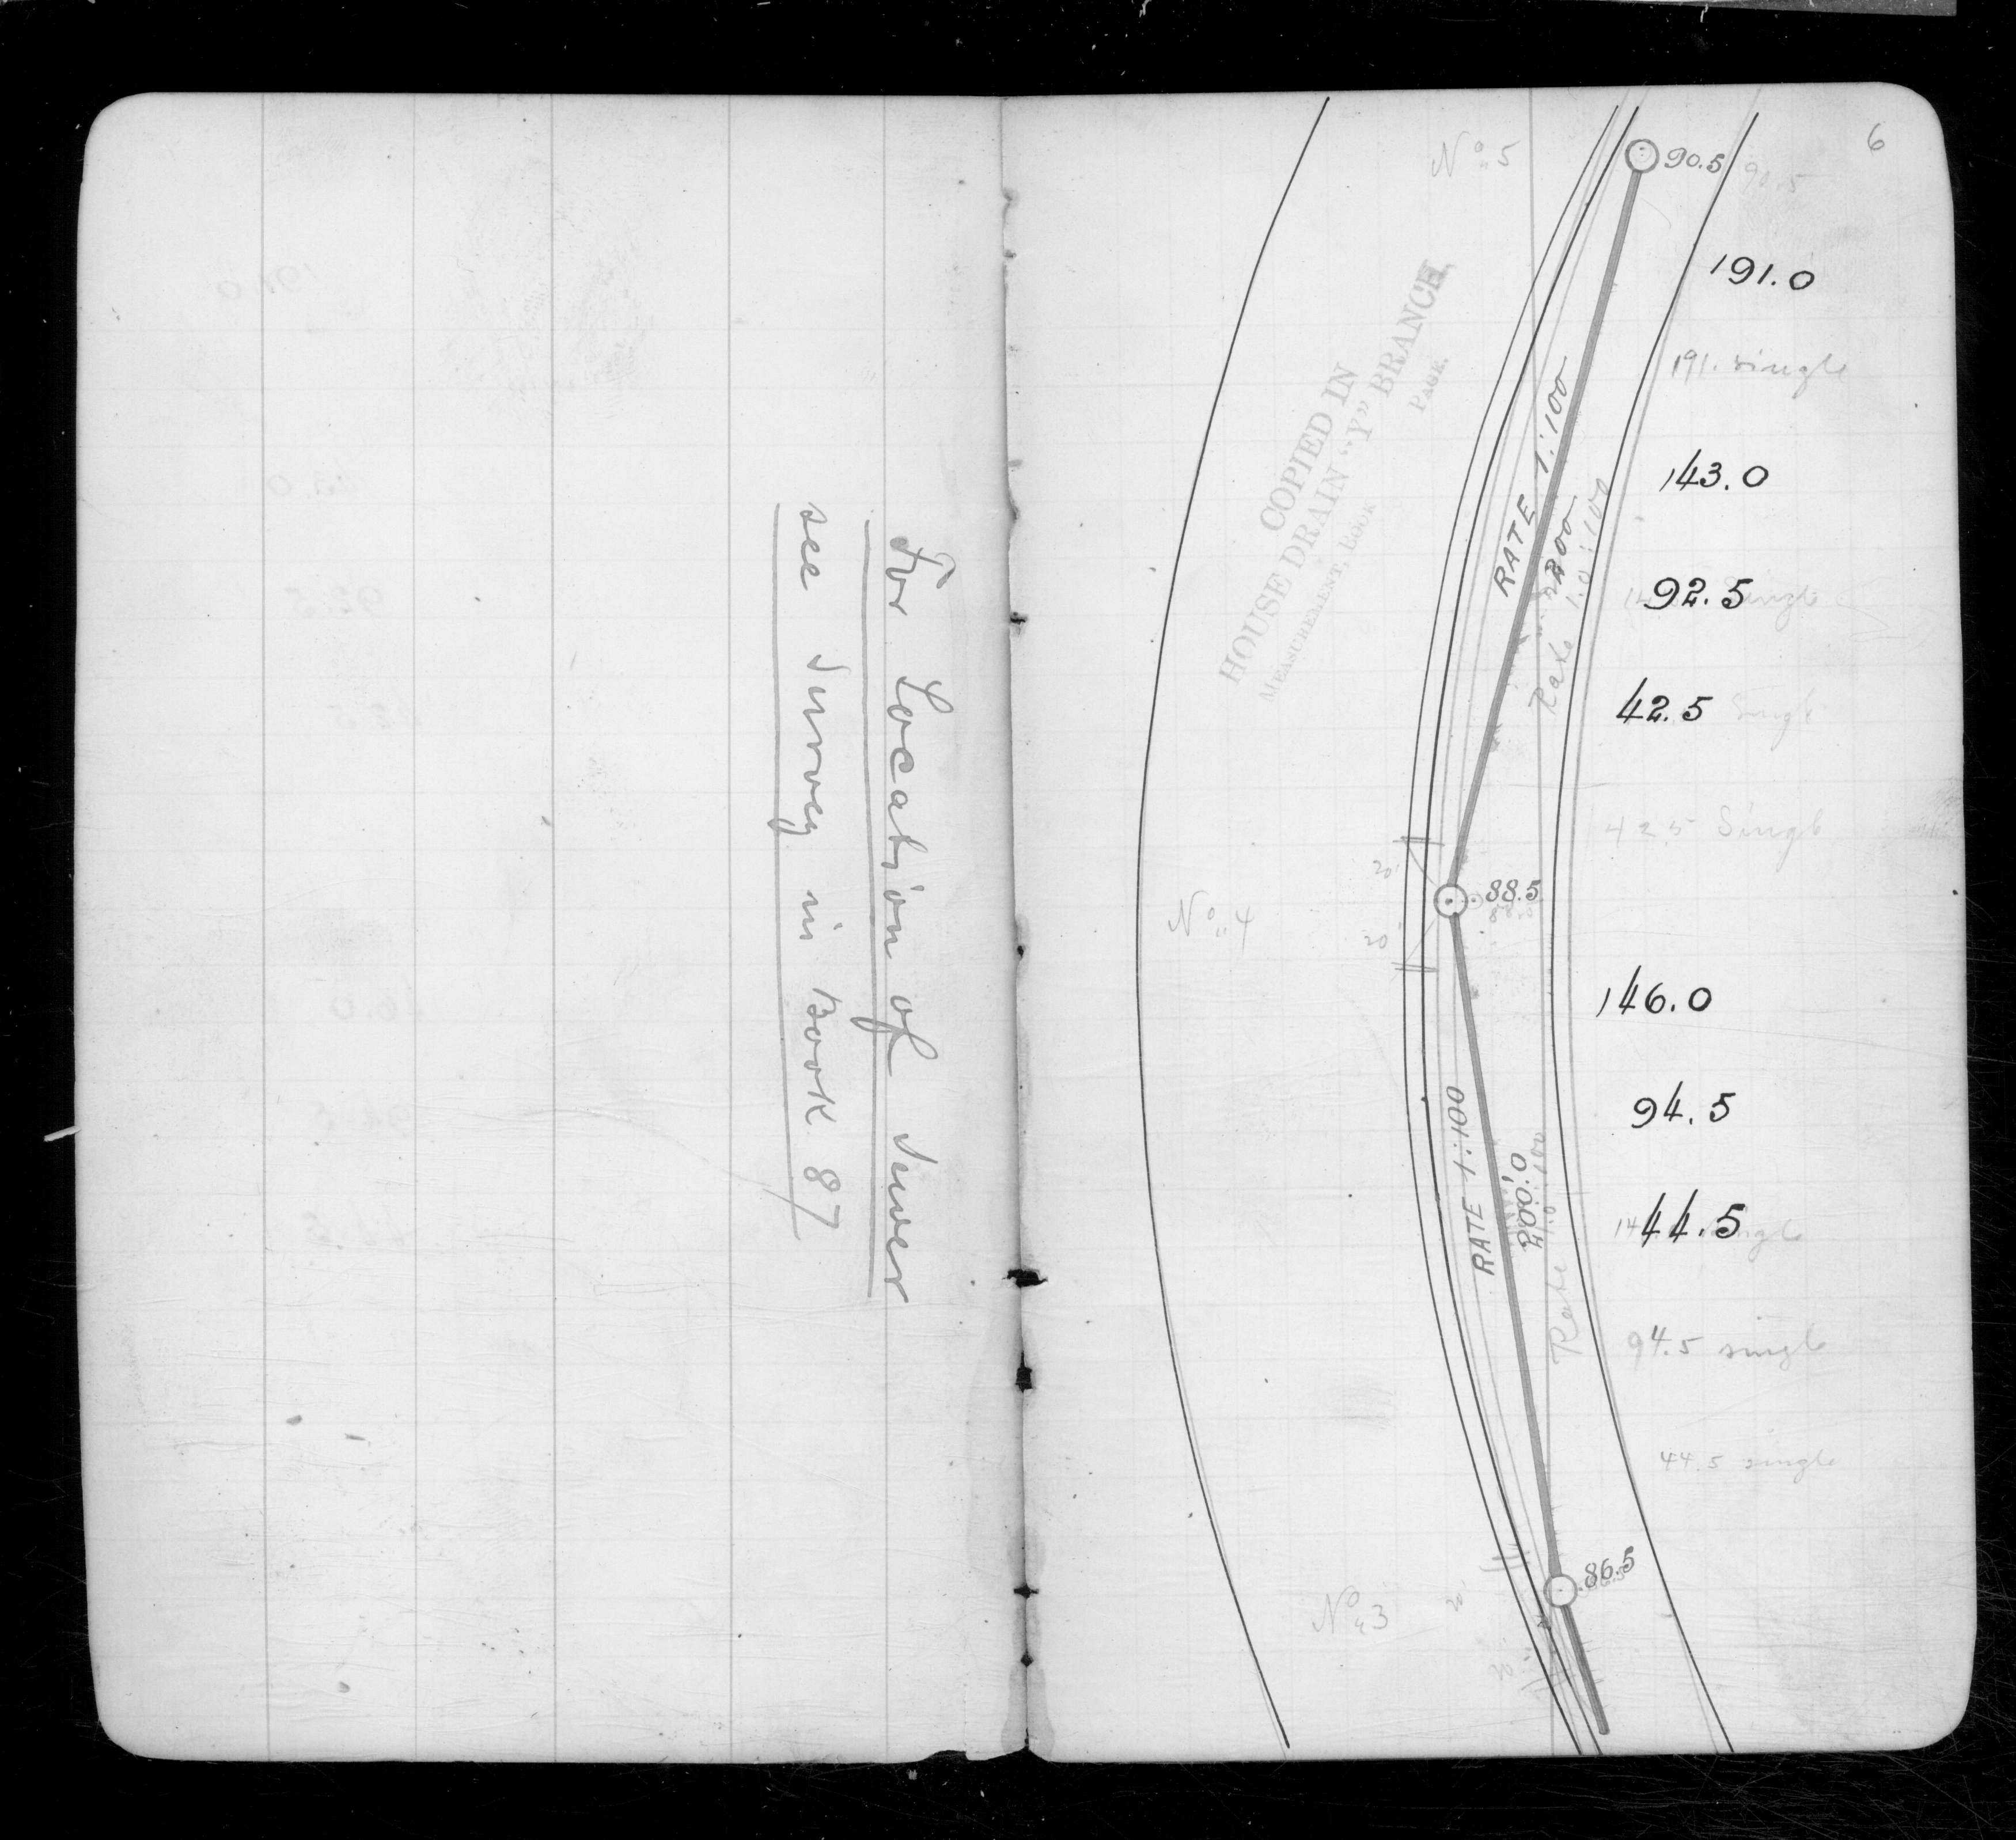 For Location of Sewer
see Survey in Book 87
6
No 5
90.5
90.5
191.0
191. single
COPIED IN
HOUSE DRAIN "Y" BRANCH
MEASUREMENT, BOOK
PAGE.
RATE 1:100
200.0
Rate 1.0:100
143.0
92.5
single
42.5
Single
42.5 Single
20'
No 4
88.5
20'
146.0
RATE 1:100
200.0
Rate 1.0:100
94.5
44.5
single
94.5 single
44.5 single
86.5
No 3
20'
20'